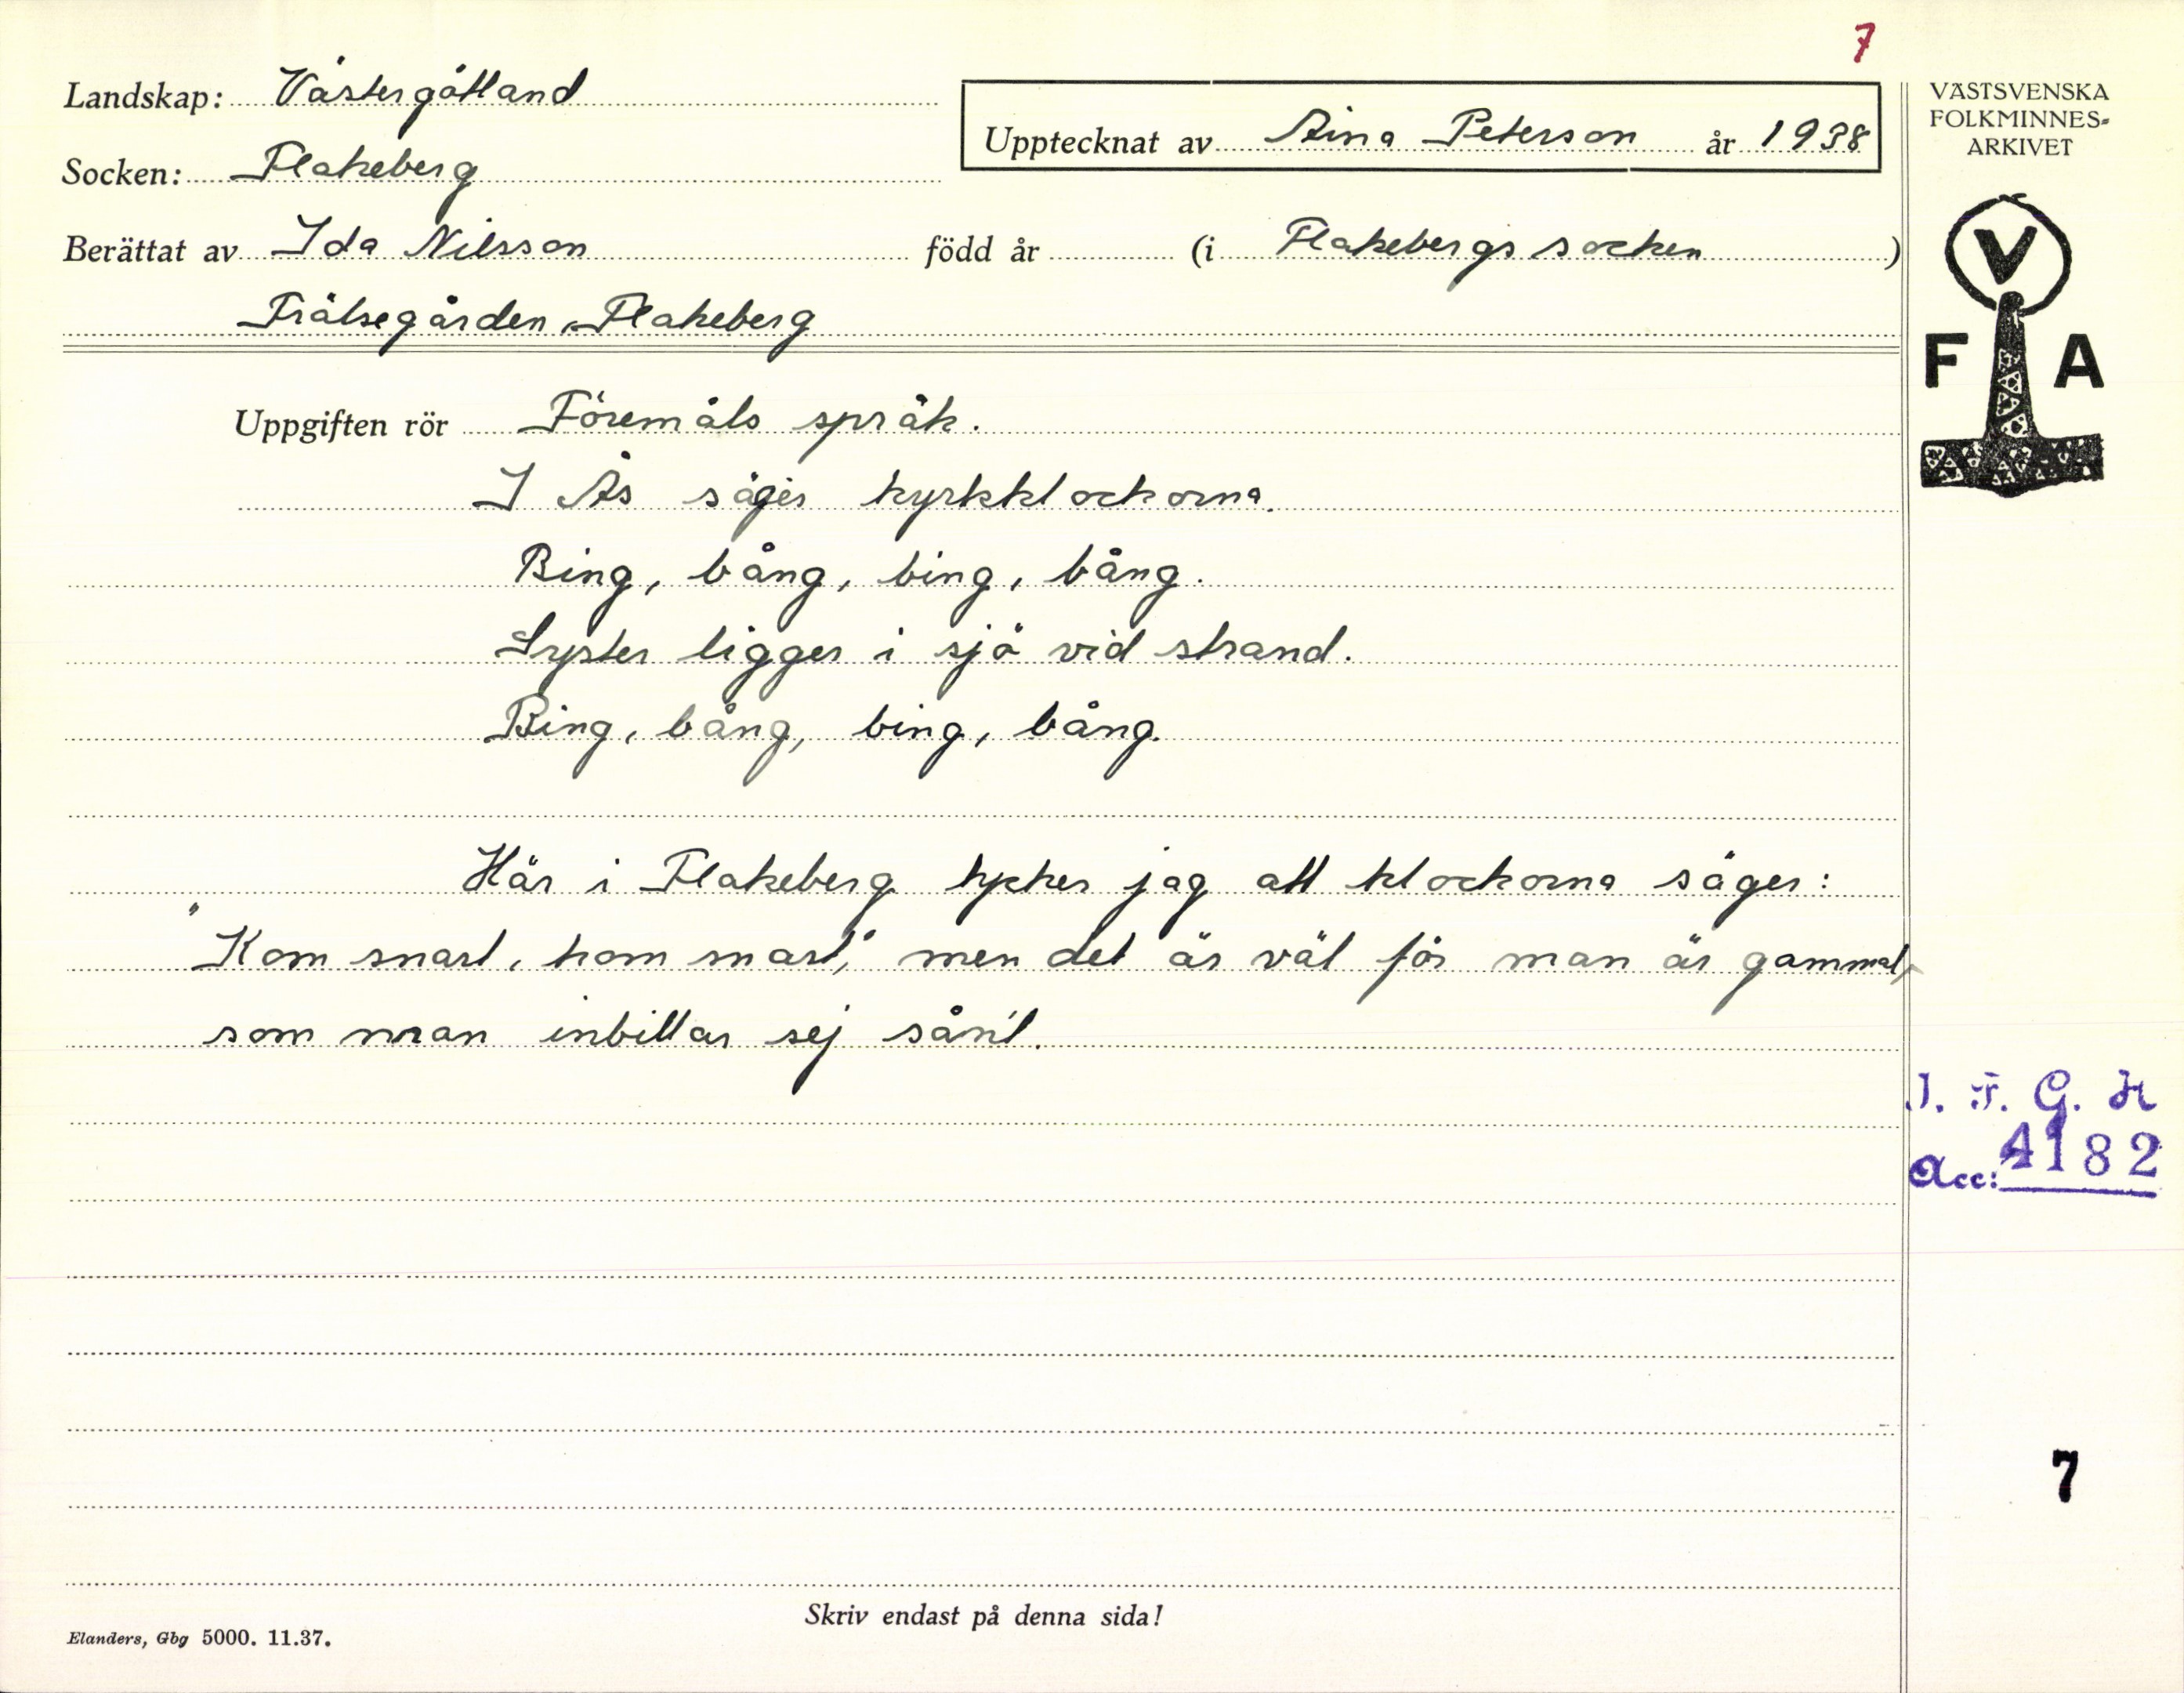 7
Landskap: Västergötland
Upptecknat av Aina Peterson år 1938
VÄSTSVENSKA
FOLKMINNES-
ARKIVET
Socken: Flakeberg
Berättat av Ida Nilsson född år (i Flakebergs socken)
Frälsegården, Flakeberg
V
F A
Uppgiften rör Föremåls språk.
I Ås säges kyrkklockorna.
Bing, bång, bing, bång.
Syster ligger i sjö vid strand.
Bing, bång, bing, bång.
Här i Flakeberg tycker jag att klockorna säger:
"Kom snart, kom snart," men det är väl för man är gammal,
som man inbillar sej sån't.
I. F. G. H
Acc: 4182
7
Skriv endast på denna sida!
Elanders, Gbg 5000. 11.37.